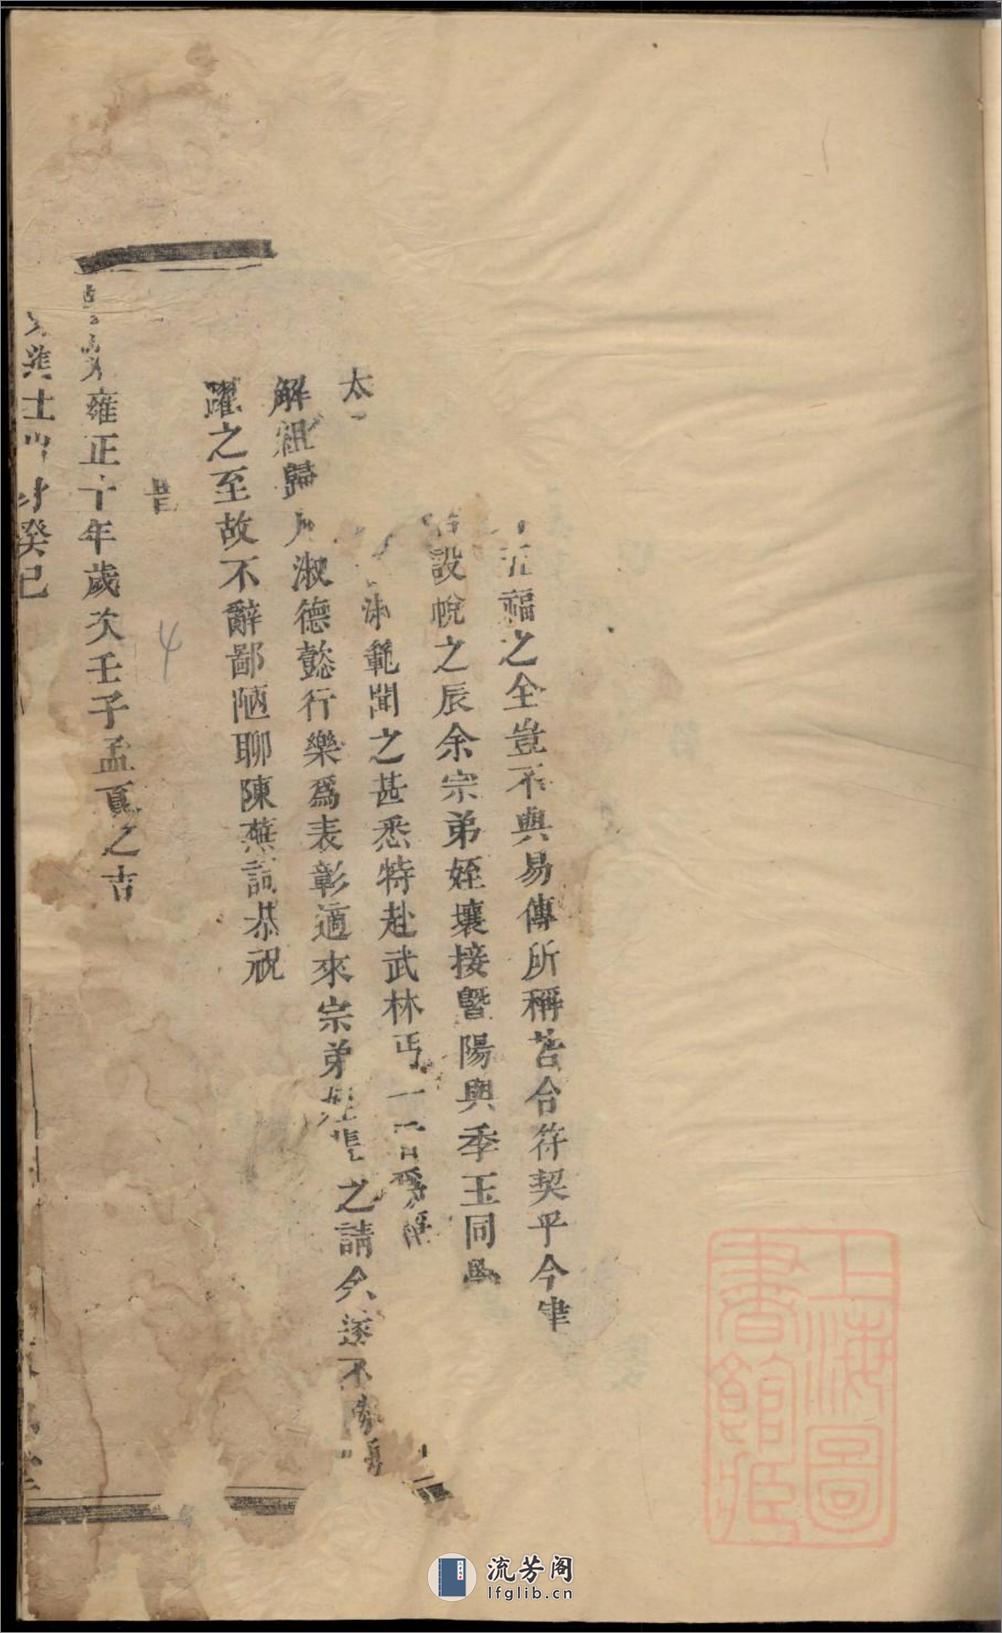 五福之全豈不與易傳所稱若合符契乎今
設帨之辰余宗弟姪壤接暨陽與季玉同
淑範聞之甚悉特赴武林丐一言爲
太
解組歸 淑德懿行樂爲表彰適來宗弟 之請余遂不
躍之至故不辭鄙陋聊陳蕪詞恭祝
旹
雍正十年歲次壬子孟夏之吉
進士 癸巳
4
上海圖書館藏
流芳阁
lfglib.cn